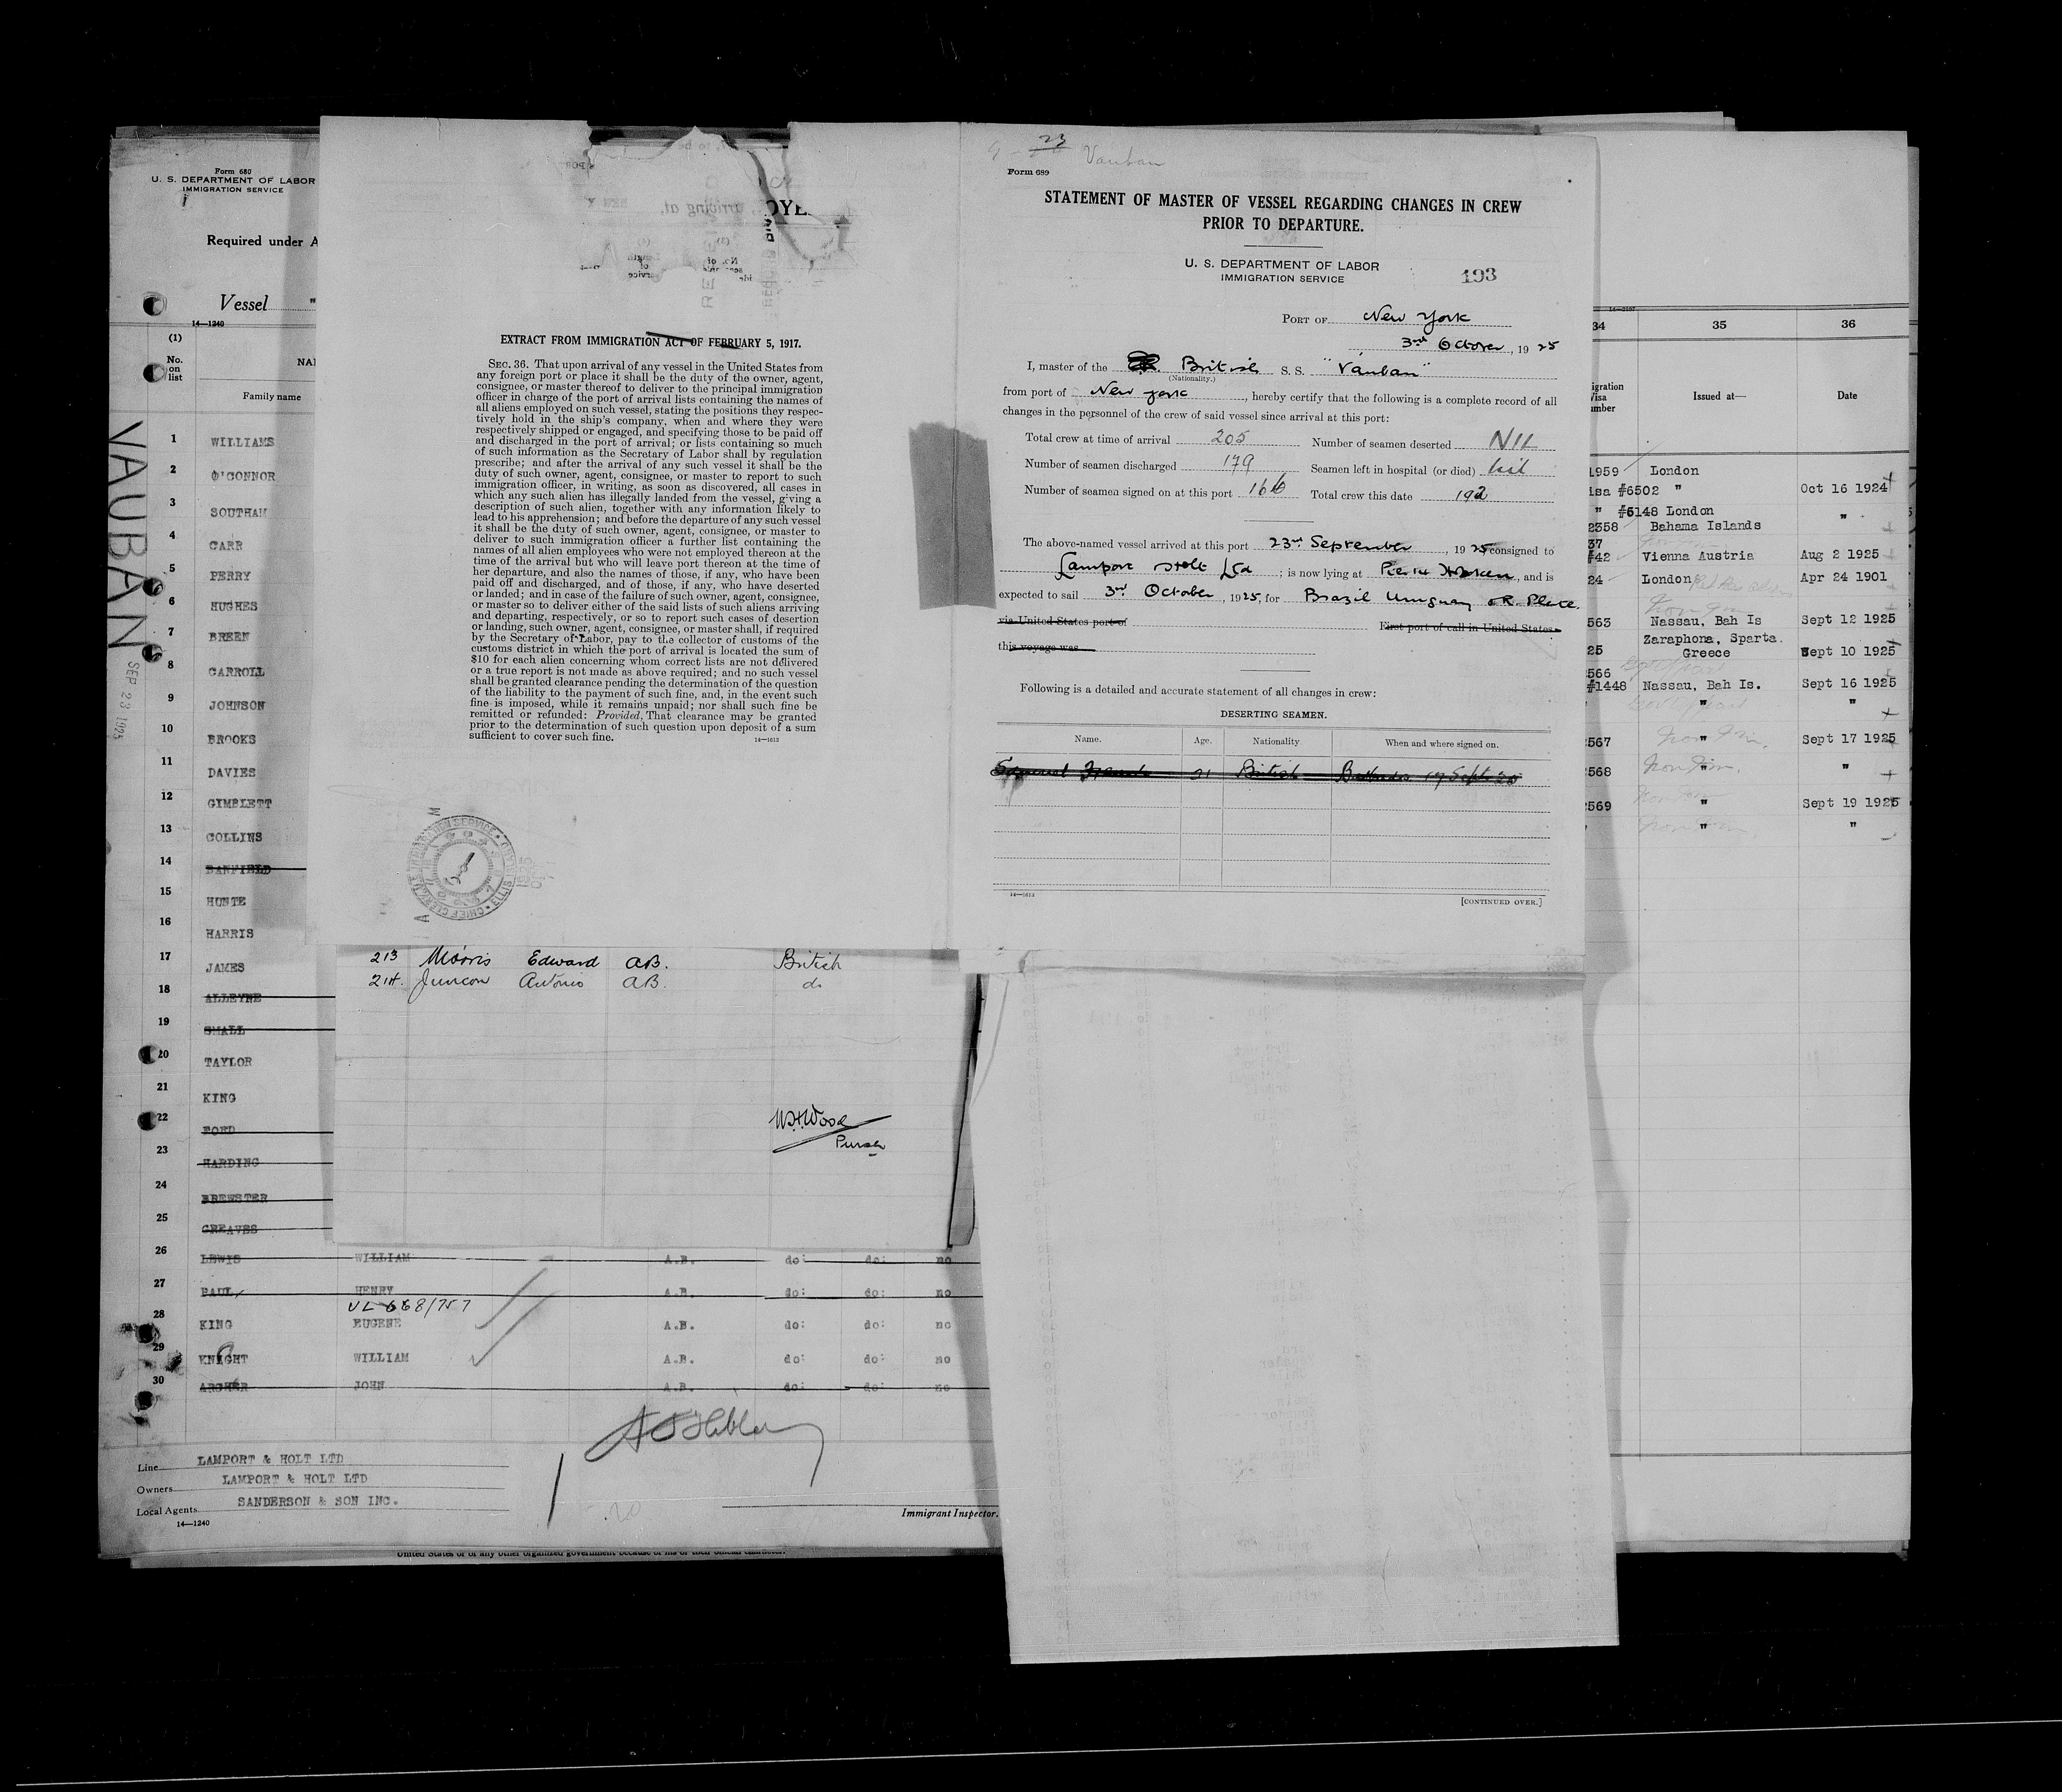 Form 680
U. S. DEPARTMENT OF LABOR
IMMIGRATION SERVICE
Required under A
Vessel "
14—1240
(1)
No. on list
NA
Family name
VAUBAN
SEP 23 1925
1 WILLIAMS
2 O'CONNOR
3 SOUTHAM
4 CARR
5 PERRY
6 HUGHES
7 BREEN
8 CARROLL
9 JOHNSON
10 BROOKS
11 DAVIES
12 GIMBLETT
13 COLLINS
14 BANFIELD
15 HUNTE
16 HARRIS
17 JAMES
18 ALLEYNE
19 SMALL
20 TAYLOR
21 KING
22 FORD
23 HARDING
24 BREWSTER
25 GREAVES
26 LEWIS WILLIAM A.B. do: do: no
27 PAUL, HENRY A.B. do: do: no
VL 668/757
28 KING EUGENE A.B. do: do: no
29 KNIGHT WILLIAM A.B. do: do: no
30 ARCHER JOHN A.B. do: do: no
Line LAMPORT & HOLT LTD
Owners LAMPORT & HOLT LTD
Local Agents SANDERSON & SON INC.
14—1240
Immigrant Inspector.
United States or of any other organized government because of his or their official character.
OYE
arriving at,
EXTRACT FROM IMMIGRATION ACT OF FEBRUARY 5, 1917.
SEC. 36. That upon arrival of any vessel in the United States from
any foreign port or place it shall be the duty of the owner, agent,
consignee, or master thereof to deliver to the principal immigration
officer in charge of the port of arrival lists containing the names of
all aliens employed on such vessel, stating the positions they respec-
tively hold in the ship's company, when and where they were
respectively shipped or engaged, and specifying those to be paid off
and discharged in the port of arrival; or lists containing so much
of such information as the Secretary of Labor shall by regulation
prescribe; and after the arrival of any such vessel it shall be the
duty of such owner, agent, consignee, or master to report to such
immigration officer, in writing, as soon as discovered, all cases in
which any such alien has illegally landed from the vessel, giving a
description of such alien, together with any information likely to
lead to his apprehension; and before the departure of any such vessel
it shall be the duty of such owner, agent, consignee, or master to
deliver to such immigration officer a further list containing the
names of all alien employees who were not employed thereon at the
time of the arrival but who will leave port thereon at the time of
her departure, and also the names of those, if any, who have been
paid off and discharged, and of those, if any, who have deserted
or landed; and in case of the failure of such owner, agent, consignee,
or master so to deliver either of the said lists of such aliens arriving
and departing, respectively, or so to report such cases of desertion
or landing, such owner, agent, consignee, or master shall, if required
by the Secretary of Labor, pay to the collector of customs of the
customs district in which the port of arrival is located the sum of
$10 for each alien concerning whom correct lists are not delivered
or a true report is not made as above required; and no such vessel
shall be granted clearance pending the determination of the question
of the liability to the payment of such fine, and, in the event such
fine is imposed, while it remains unpaid; nor shall such fine be
remitted or refunded: Provided, That clearance may be granted
prior to the determination of such question upon deposit of a sum
sufficient to cover such fine.
14—1613
213 Morris Edward AB. British
214. Juncon Antonio AB. do
W.H.Wood
Purser
23
Vauban
Form 689
STATEMENT OF MASTER OF VESSEL REGARDING CHANGES IN CREW
PRIOR TO DEPARTURE.
U. S. DEPARTMENT OF LABOR
IMMIGRATION SERVICE
193
PORT OF New York
3rd October, 1925
I, master of the British S. S. "Vauban"
(Nationality.)
from port of New York, hereby certify that the following is a complete record of all
changes in the personnel of the crew of said vessel since arrival at this port:
Total crew at time of arrival 205 Number of seamen deserted NIL
Number of seamen discharged 179 Seamen left in hospital (or died) Nil
Number of seamen signed on at this port 166 Total crew this date 192
The above-named vessel arrived at this port 23rd September, 1925 consigned to
Lamport Holt Ltd; is now lying at Hoboken, and is
expected to sail 3rd October, 1925, for Brazil Uruguay & R. Plate.
via United States port of First port of call in United States
this voyage was
Following is a detailed and accurate statement of all changes in crew:
DESERTING SEAMEN.
Name. Age. Nationality When and where signed on.
Samuel 21 British Barbados 17 Sept 25
14—1613
[CONTINUED OVER.]
34 35 36
igration Visa umber Issued at— Date
1959 London
isa #6502 " Oct 16 1924
" #6148 London
2358 Bahama Islands "
37
#42 Vienna Austria Aug 2 1925
24 London Apr 24 1901
563 Nassau, Bah Is Sept 12 1925
Zaraphona, Sparta.
25 Greece Sept 10 1925
2566
#1448 Nassau, Bah Is. Sept 16 1925
" "
2567 " Sept 17 1925
2568 " "
2569 " Sept 19 1925
" "